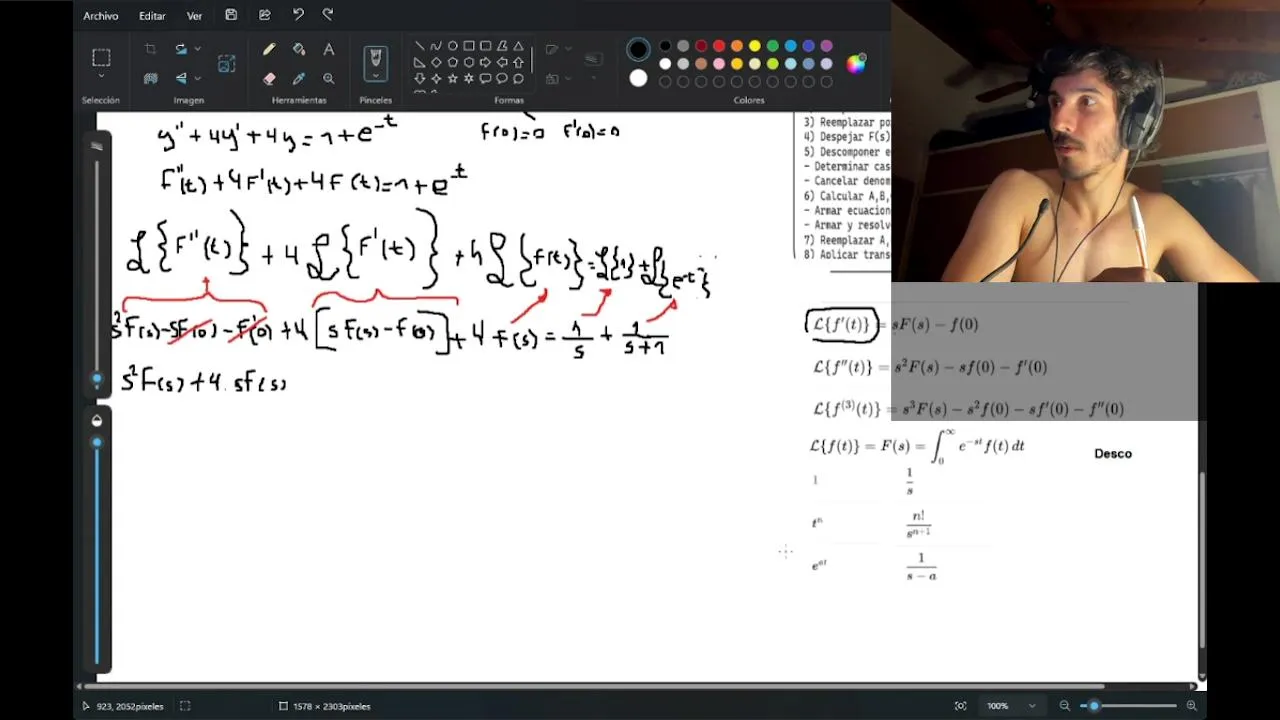 Archivo Editar Ver
Selección Imagen Herramientas Pinceles Formas Colores
y''+4y'+4y=1+e^-t
f(0)=0 f'(0)=0
F''(t)+4F'(t)+4F(t)=1+e^-t
ℒ{F''(t)}+4ℒ{F'(t)}+4ℒ{f(t)}=ℒ{1}+ℒ{e^-t}
s²F(s)-sf(0)-f'(0)+4[sF(s)-f(0)]+4F(s)=1/s+1/(s+1)
s²F(s)+4.sF(s)
3) Reemplazar po
4) Despejar F(s)
5) Descomponer e
- Determinar cas
- Cancelar denom
6) Calcular A,B,
- Armar ecuacion
- Armar y resolv
7) Reemplazar A,
8) Aplicar trans
ℒ{f'(t)} = sF(s) − f(0)
ℒ{f''(t)} = s²F(s) − sf(0) − f'(0)
ℒ{f⁽³⁾(t)} = s³F(s) − s²f(0) − sf'(0) − f''(0)
ℒ{f(t)} = F(s) = ∫₀^∞ e^−st f(t) dt
Desco
1 1/s
tⁿ n!/sⁿ⁺¹
e^at 1/(s − a)
923, 2052píxeles 1578 × 2303píxeles 100%